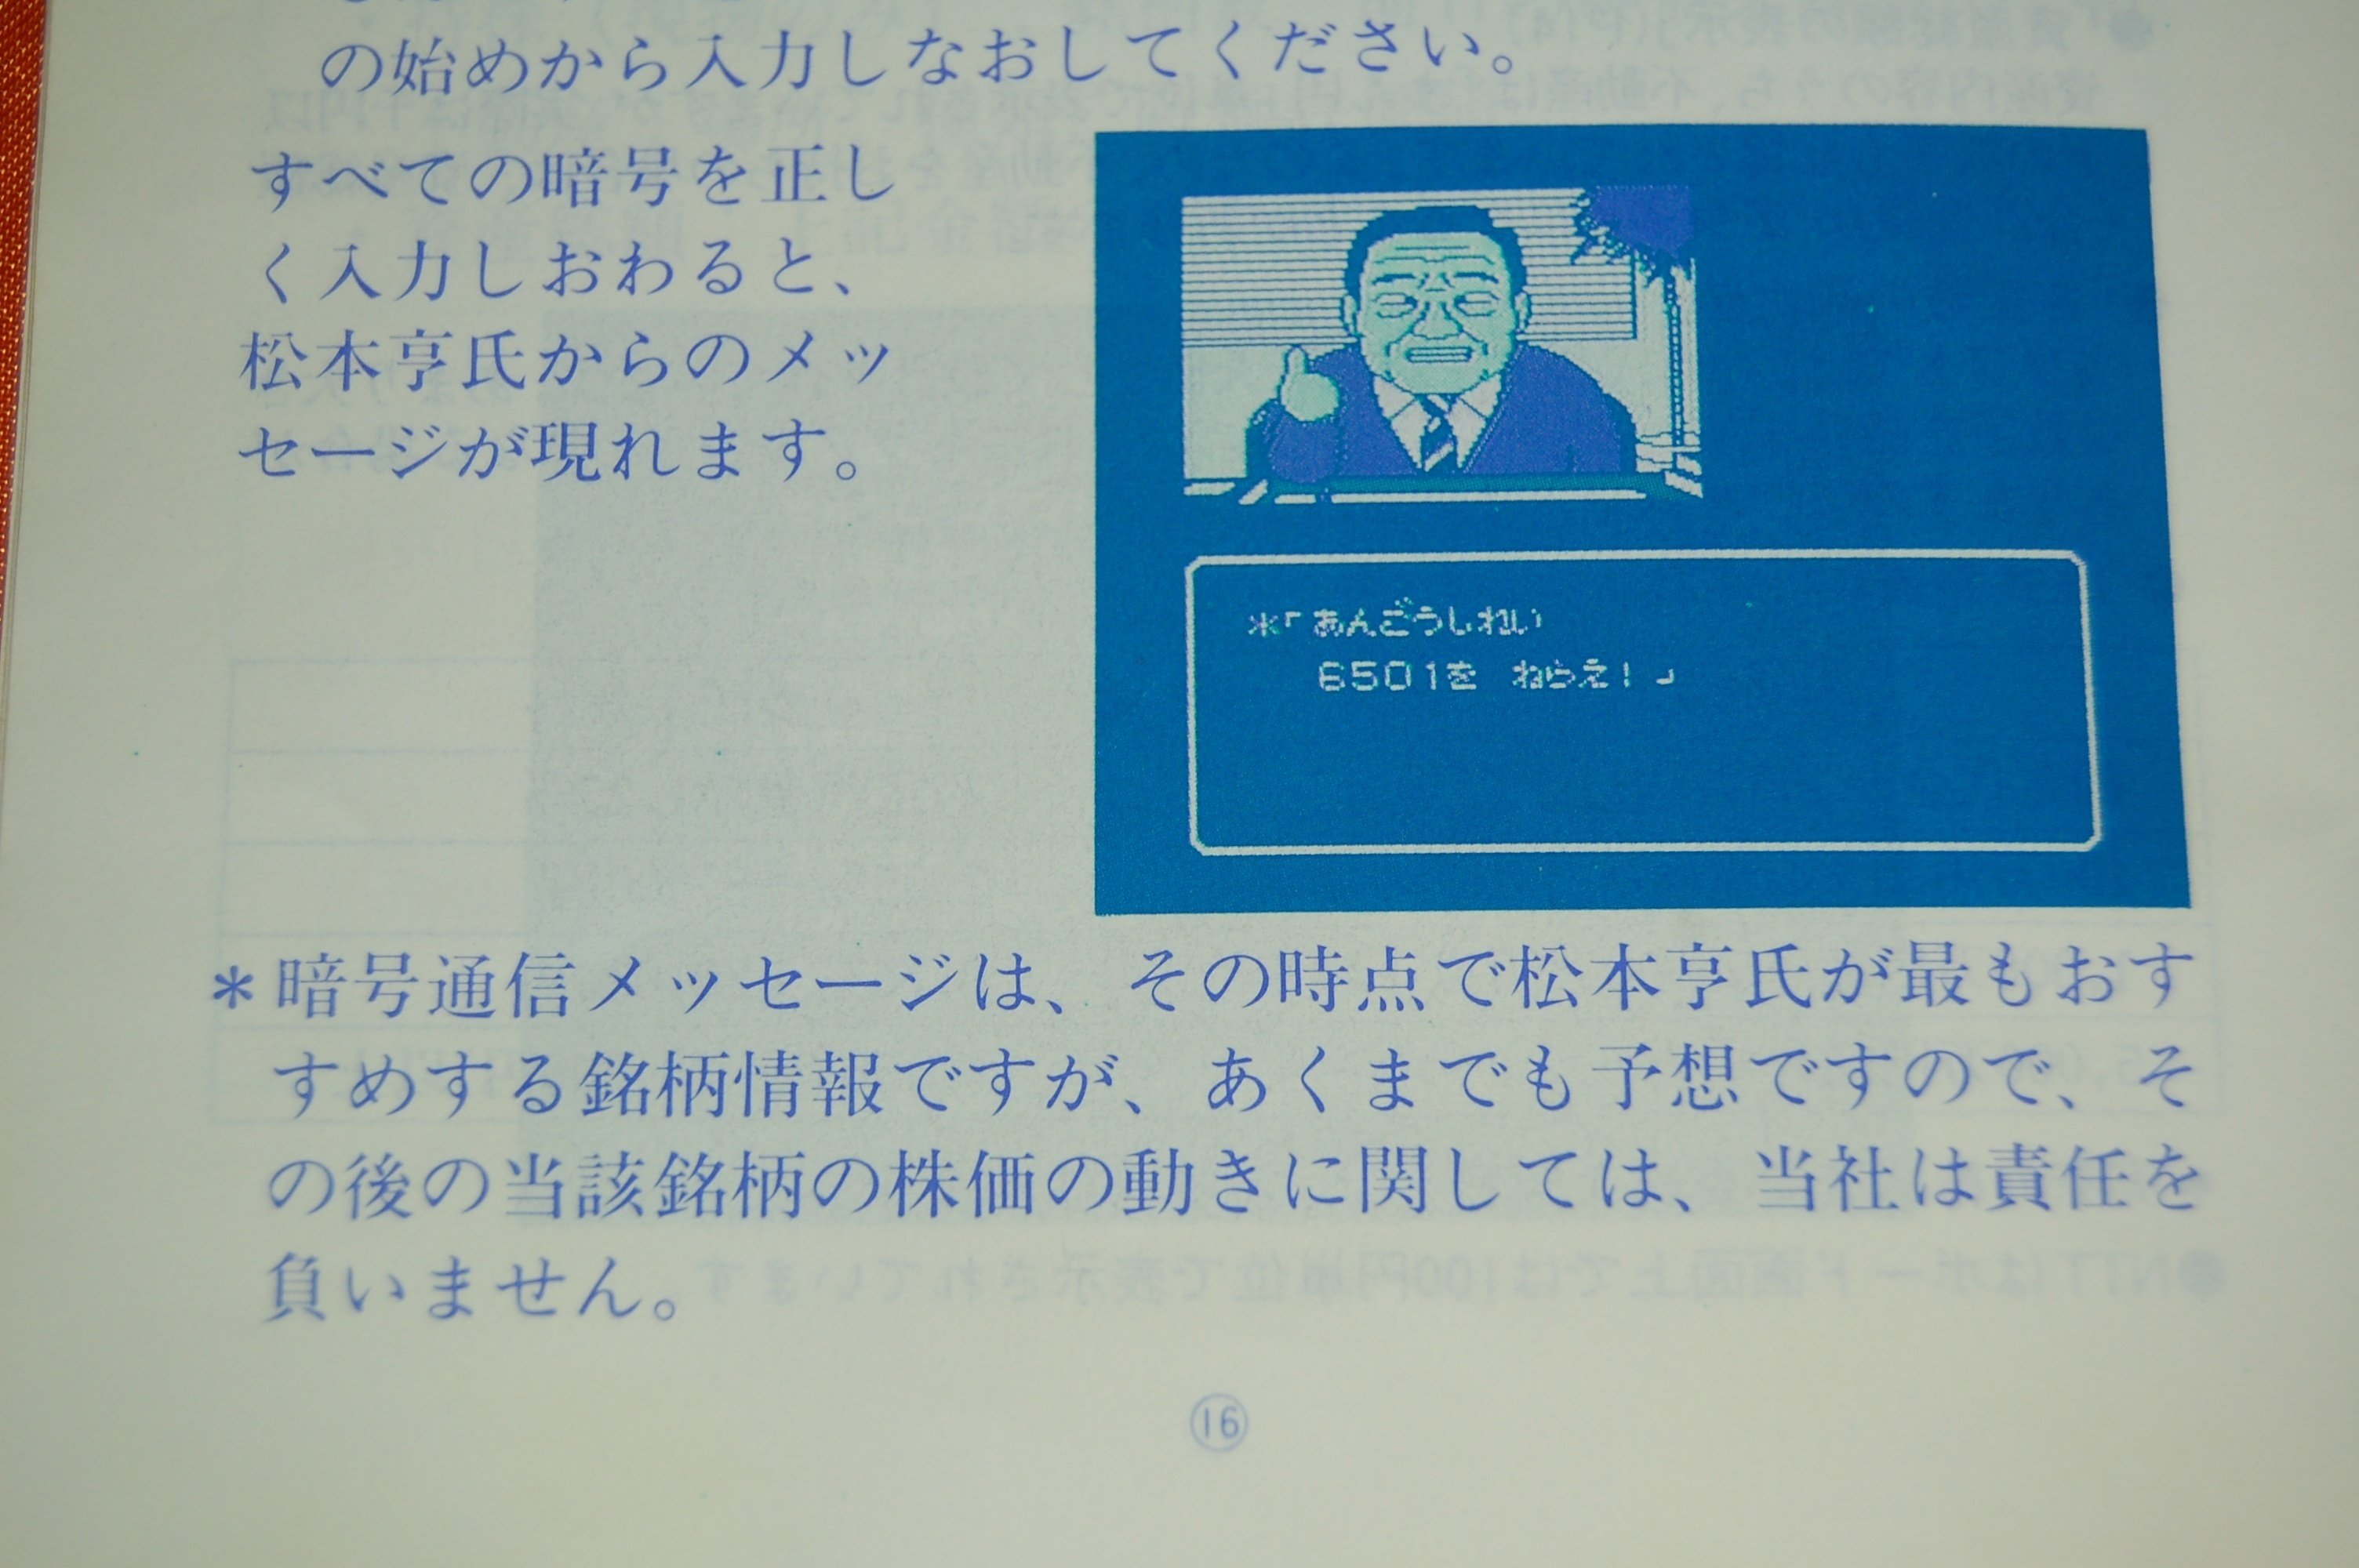 の始めから入力しなおしてください。
すべての暗号を正し
く入力しおわると、
松本亨氏からのメッ
セージが現れます。
*「あんごうしれい
6501を ねらえ!」
*暗号通信メッセージは、その時点で松本亨氏が最もおす
すめする銘柄情報ですが、あくまでも予想ですので、そ
の後の当該銘柄の株価の動きに関しては、当社は責任を
負いません。
●NTTはボード画面上では100円単位で表示されています
16